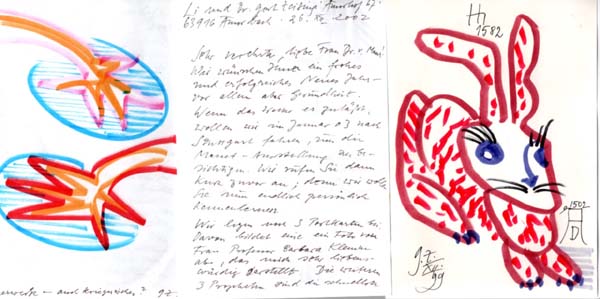 auch kriegerisches? g.Z.
Li und Dr. Gert
63916 Amorbach. 26. XII. 2002
Sehr verehrte, liebe Frau Dr. v.
Wir wünschen Ihnen ein frohes
und erfolgreiches Neues Jahr –
vor allem aber Gesundheit.
Wenn das Wetter es zuläßt,
wollen wir im Januar 03 nach
Stuttgart fahren, um die
Manet-Ausstellung zu be-
sichtigen. Wir rufen Sie dann
kurz zuvor an, denn wir wolle
Sie nun endlich persönlich
kennenlernen.
Wir legen noch 3 Postkarten bei.
Davon bildet eine ein Foto von
Frau Professor Barbara Klemm
ab, das mich sehr liebens-
würdig darstellt. Die weiteren
3 Propheten sind die
1582
1502
AD
g.Z.
XII.
99